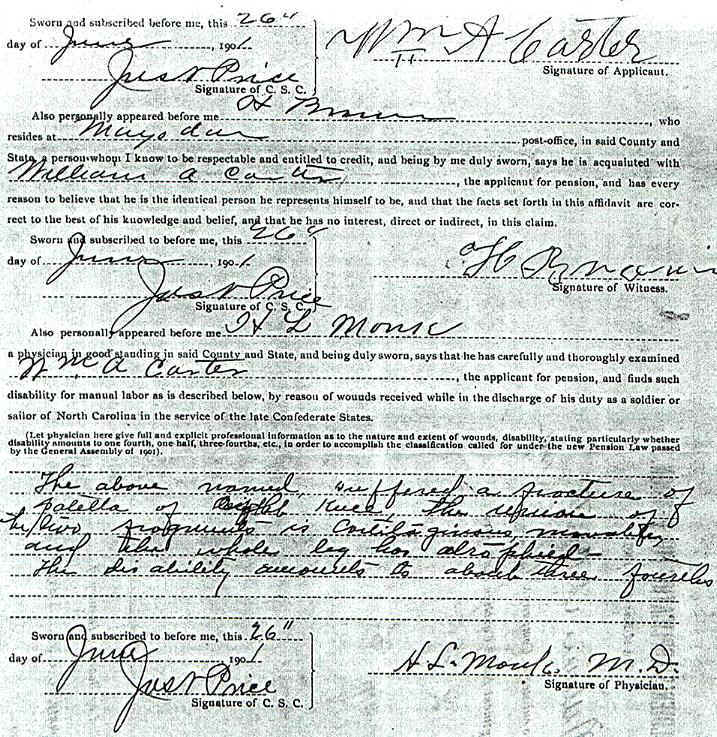 Sworn and subscribed before me, this 26"
day of June, 1901.
Wm A Carter
Signature of Applicant.
Jas. Price
Signature of C. S. C.
Also personally appeared before me H Brown, who
resides at Maysdan post-office, in said County and
State, a person whom I know to be respectable and entitled to credit, and being by me duly sworn, says he is acquainted with
William A Carter, the applicant for pension, and has every
reason to believe that he is the identical person he represents himself to be, and that the facts set forth in this affidavit are cor-
rect to the best of his knowledge and belief, and that he has no interest, direct or indirect, in this claim.
Sworn and subscribed to before me, this 26"
day of June, 1901.
H Brown
Signature of Witness.
Jas. Price
Signature of C. S. C.
Also personally appeared before me H L Monk
a physician in good standing in said County and State, and being duly sworn, says that he has carefully and thoroughly examined
W M A Carter, the applicant for pension, and finds such
disability for manual labor as is described below, by reason of wounds received while in the discharge of his duty as a soldier or
sailor of North Carolina in the service of the late Confederate States.
(Let physician here give full and explicit professional information as to the nature and extent of wounds, disability, stating particularly whether
disability amounts to one fourth, one half, three-fourths, etc., in order to accomplish the classification called for under the new Pension Law passed
by the General Assembly of 1901).
The above named, suffered a fracture of
patella of right knee. the union of
the two fragments is cartilaginous, movable,
and the whole leg has atrophied—
The disability amounts to about three fourths
Sworn and subscribed to before me, this 26"
day of June 1901
H L. Monk, M.D.
Signature of Physician.
Jas. Price
Signature of C. S. C.